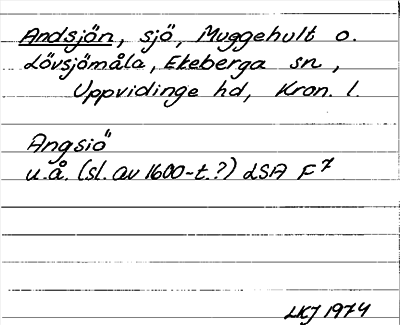 Andsjön, sjö, Muggehult o.
Lövsjömåla, Ekeberga sn,
Uppvidinge hd, Kron. l.
Angsiö
u.å. (sl. av 1600-t.?) LSA F7
LKJ 1974